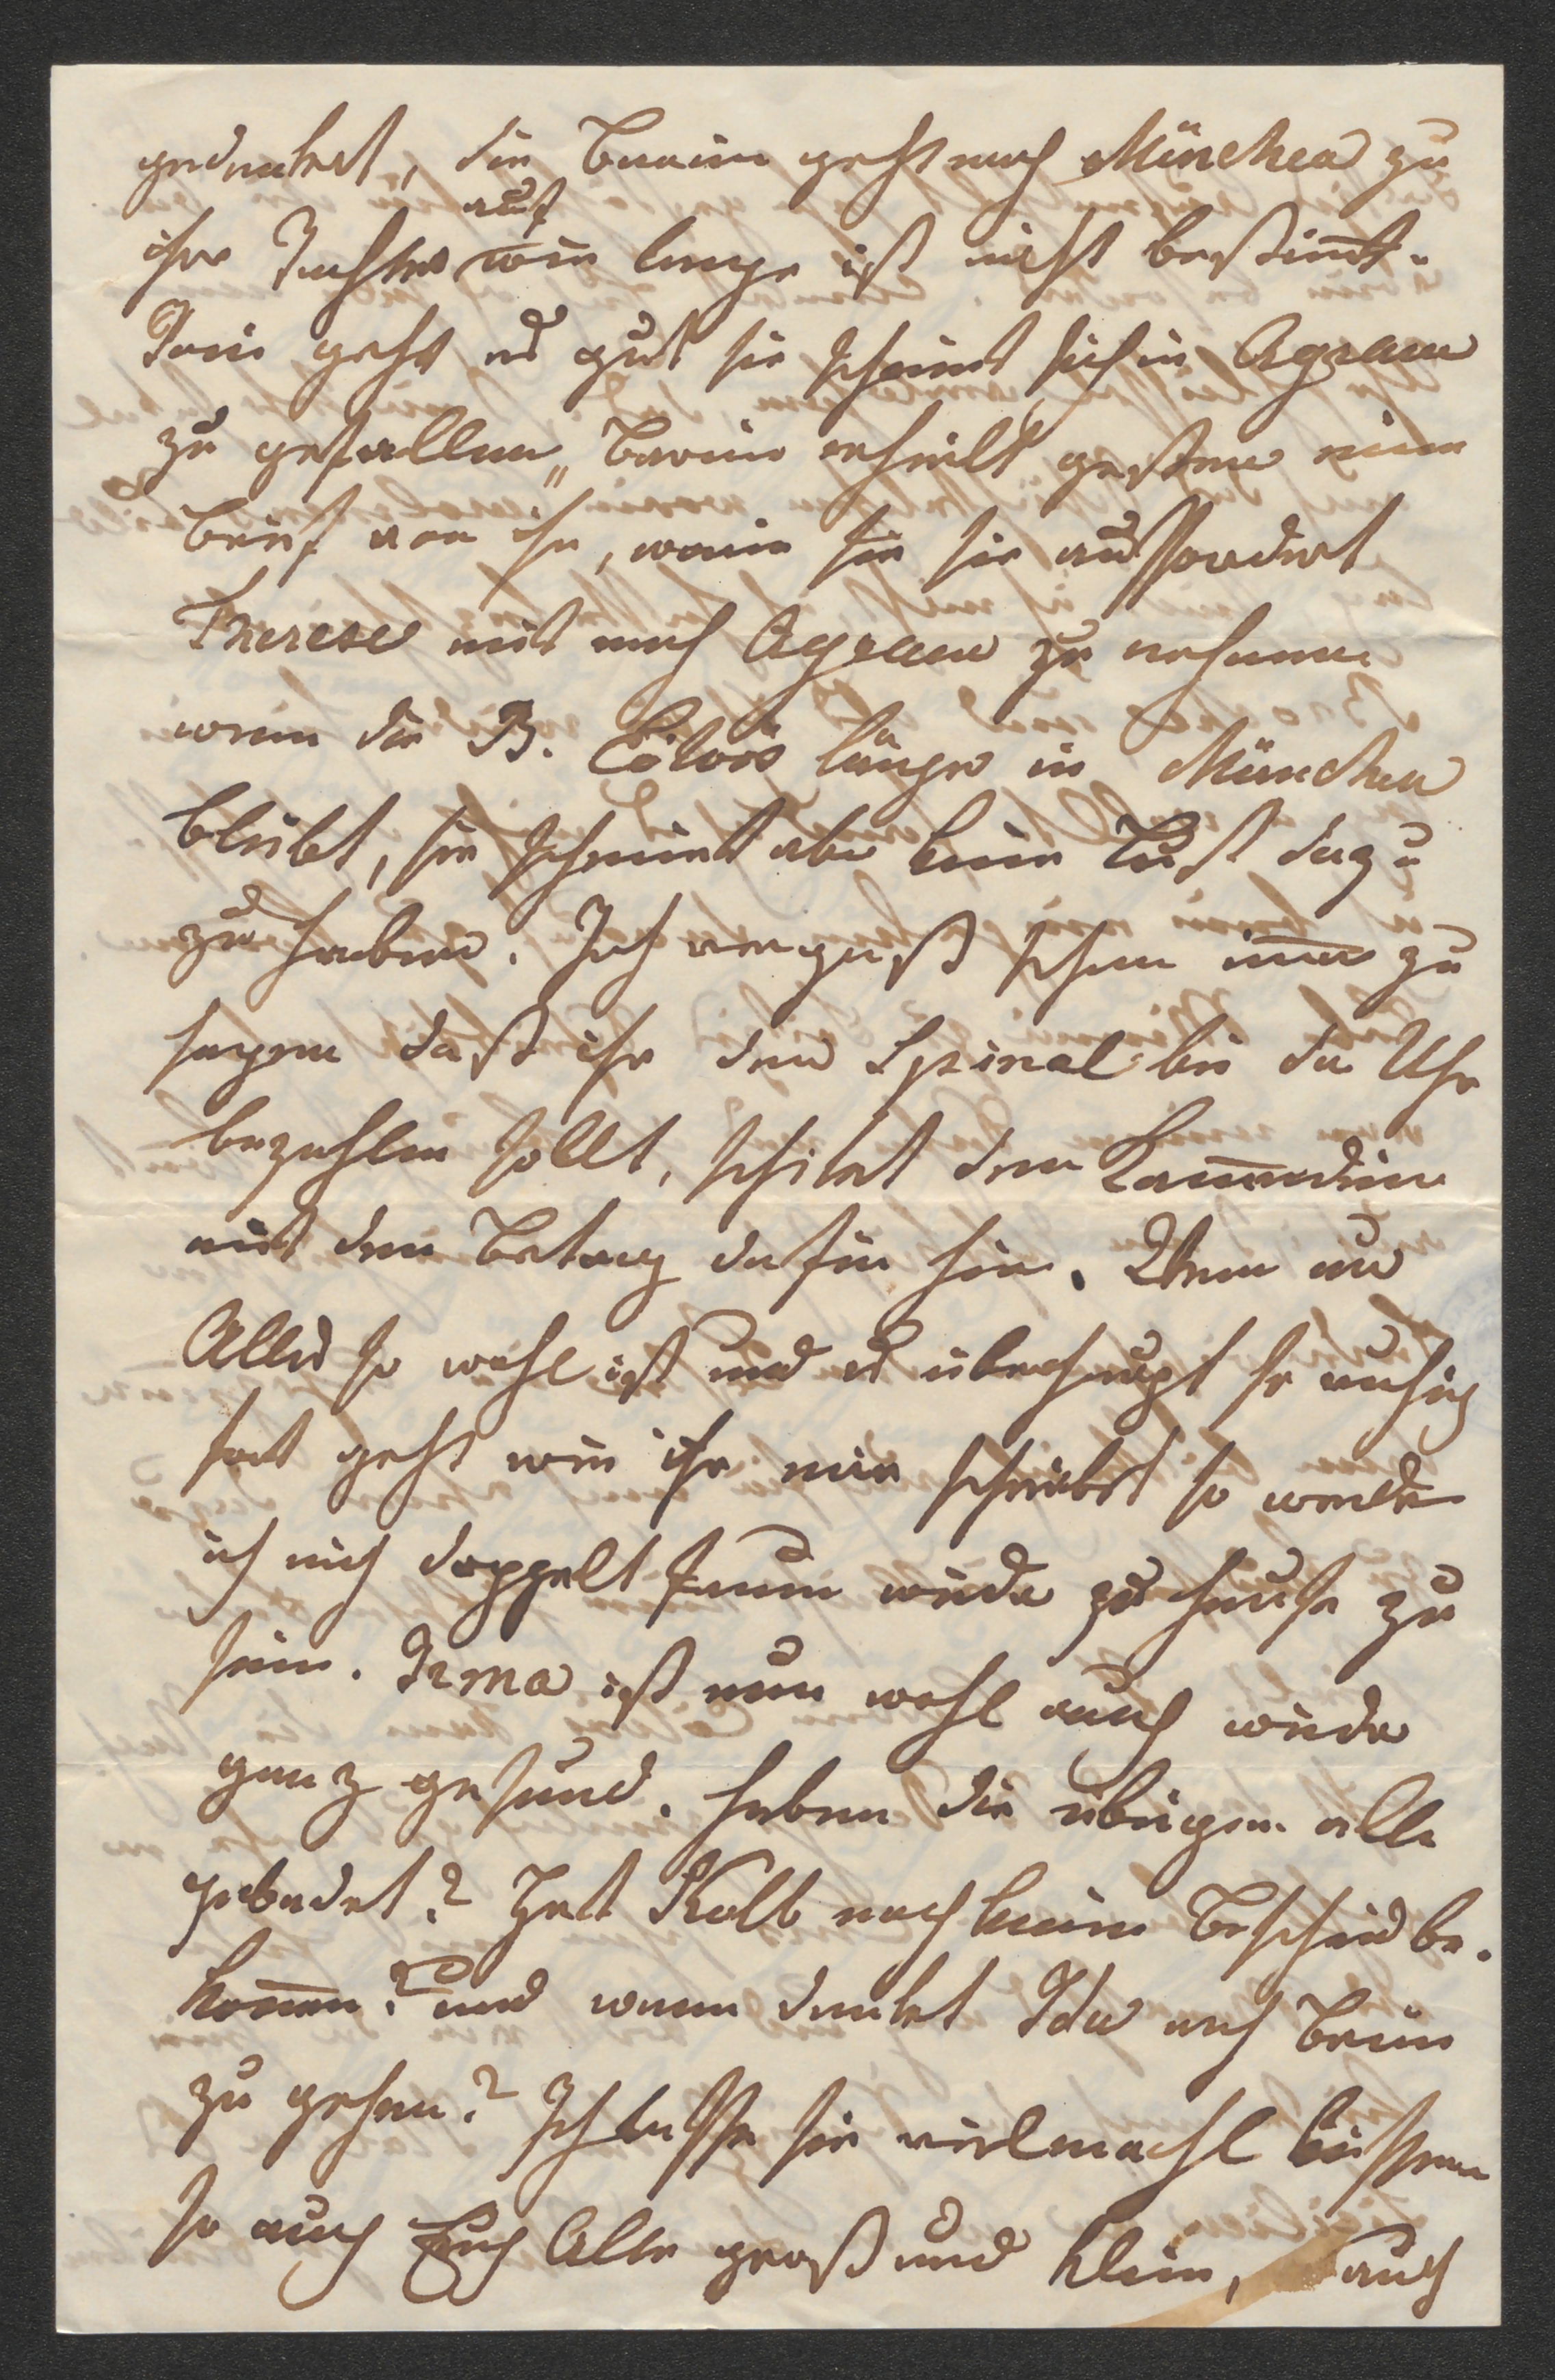 gedenket, die Baronin geht nach München zu
ihrer Tochter auf wie lange ist nicht bestimt.
Toni geht es gut sie scheint sich in Agram
zu gefallen, Baronin erhielt gestern einen
Brief von ihr, worin sie sie auffordert
Therese mit nach Agram zu nehmen
wenn die B. Eötvös länger in München
bleibt, sie scheint aber keine Lust dazu
zu haben. Ich vergaß schon imer zu
sagen daß ihr den Spinal bei der Uhr
bezahlen sollt, schikt den Kamerdiner
mit dem Betrag dafür hin. Wenn nur
Alles so wohl ist und es überhaupt so ruhig
fort geht wie ihr mir schreibet so werde
ich mich doppelt freuen wieder zu hause zu
sein. Irma ist nun wohl auch wieder
ganz gesund. haben die übrigen alle
gebadet? Hat Kolb noch keinen Bescheid be-
komen? und wann denket Ida nach Brün
zu gehen? Ich lasse sie vielmahl küssen
so auch Euch Alle groß und klein, auch